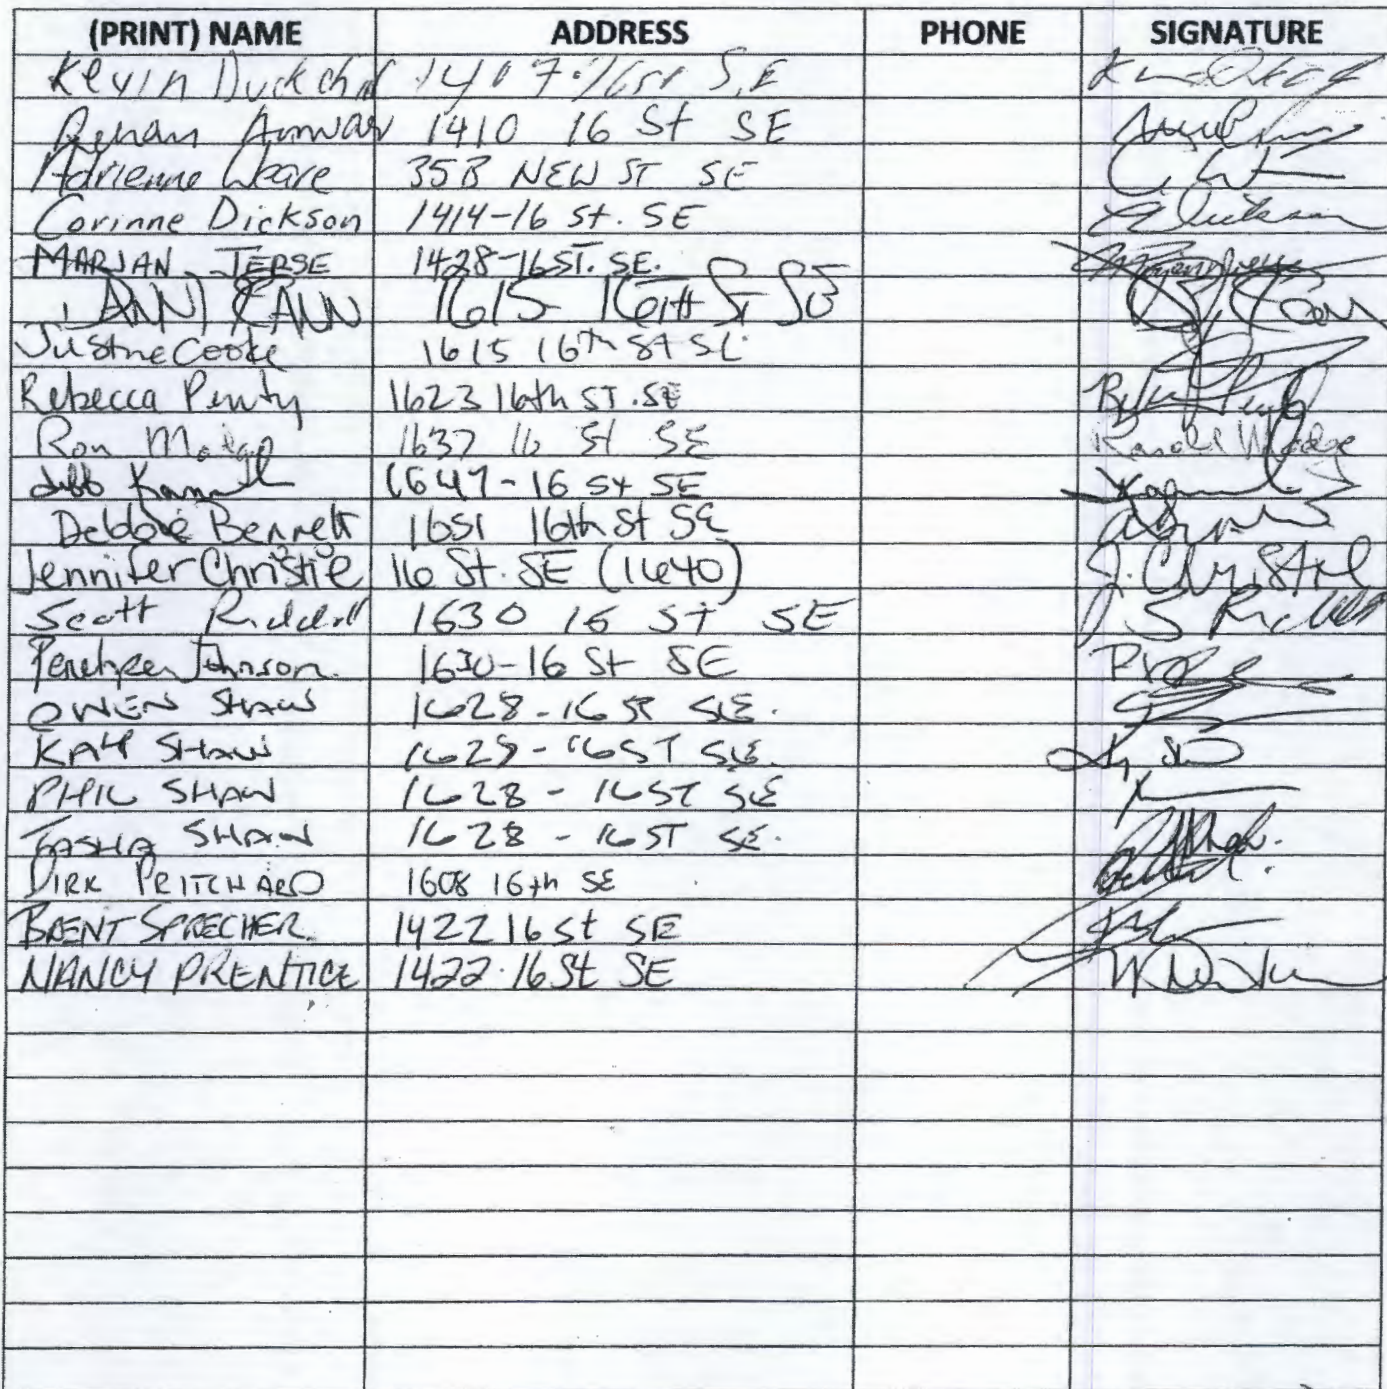 (PRINT) NAME ADDRESS PHONE SIGNATURE
Kevin 1407 16 St S.E
Anwar 1410 16 St SE
Adrienne Weare 35B NEW ST SE
Corinne Dickson 1414-16 St. SE
MARJAN TERSE 1428-16 ST. SE.
DANNI CANN 1615 16TH St SE
Justine Cooke 1615 16th St SE
Rebecca Penty 1623 16th ST. SE
Ron Madge 1637 16 St SE Ronald Madge
1647-16 St SE
Debbie Bennett 1651 16th St SE
Jennifer Christie 16 St. SE (1640) J. Christie
Scott Riddell 1630 16 ST SE J S Riddell
Penelope Johnson. 1630-16 St SE
OWEN SHAW 1628-16 ST SE.
KAY SHAW 1628-16 ST SE.
PHIL SHAW 1628 - 16 ST SE
TASHA SHAW 1628 - 16 ST SE.
DIRK PRITCHARD 1608 16th SE
BRENT SPRECHER. 1422 16 St SE
NANCY PRENTICE 1422-16 St SE